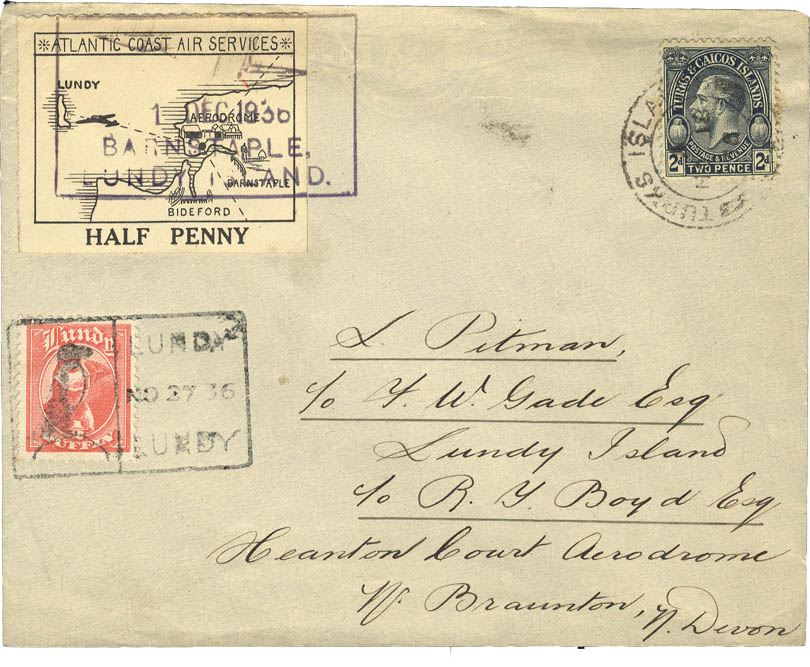 *ATLANTIC COAST AIR SERVICES*
LUNDY
AERODROME
BARNSTAPLE
BIDEFORD
HALF PENNY
1 DEC 1936
BARNSTAPLE,
LUNDY ISLAND.
TURKS & CAICOS ISLANDS
POSTAGE & REVENUE
2d 2d
TWO PENCE
TURKS ISLA
Lundy
1
PUFFIN
LUNDY
NO 27 36
LUNDY
L. Pitman,
c/o F. W. Gade Esq
Lundy Island
c/o R. T. Boyd Esq
Heanton Court Aerodrome
Nr. Braunton, N. Devon